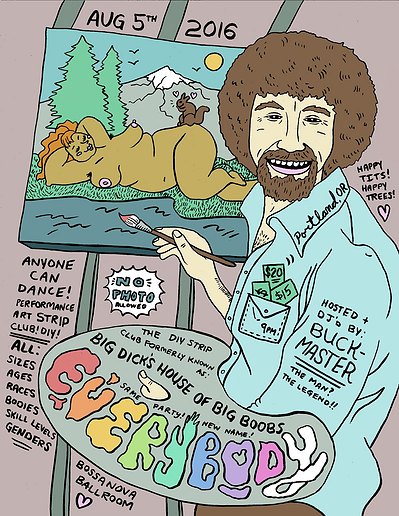 AUG 5TH 2016
HAPPY
TITS!
HAPPY
TREES!
Portland, OR
ANYONE
CAN
DANCE!
PERFORMANCE
ART STRIP
CLUB! DIY!
ALL:
SIZES
AGES
RACES
BODIES
SKILL LEVELS
GENDERS
NO
PHOTO
ALLOWED
$20
$15
9PM!
HOSTED +
DJ'D BY:
BUCK-
MASTER
THE MAN?
THE LEGEND!!
THE DIY STRIP
CLUB FORMERLY KNOWN
AS:
BIG DICK'S HOUSE OF BIG BOOBS
SAME
PARTY!
NEW NAME!
EVERYBODY
BOSSANOVA
BALLROOM